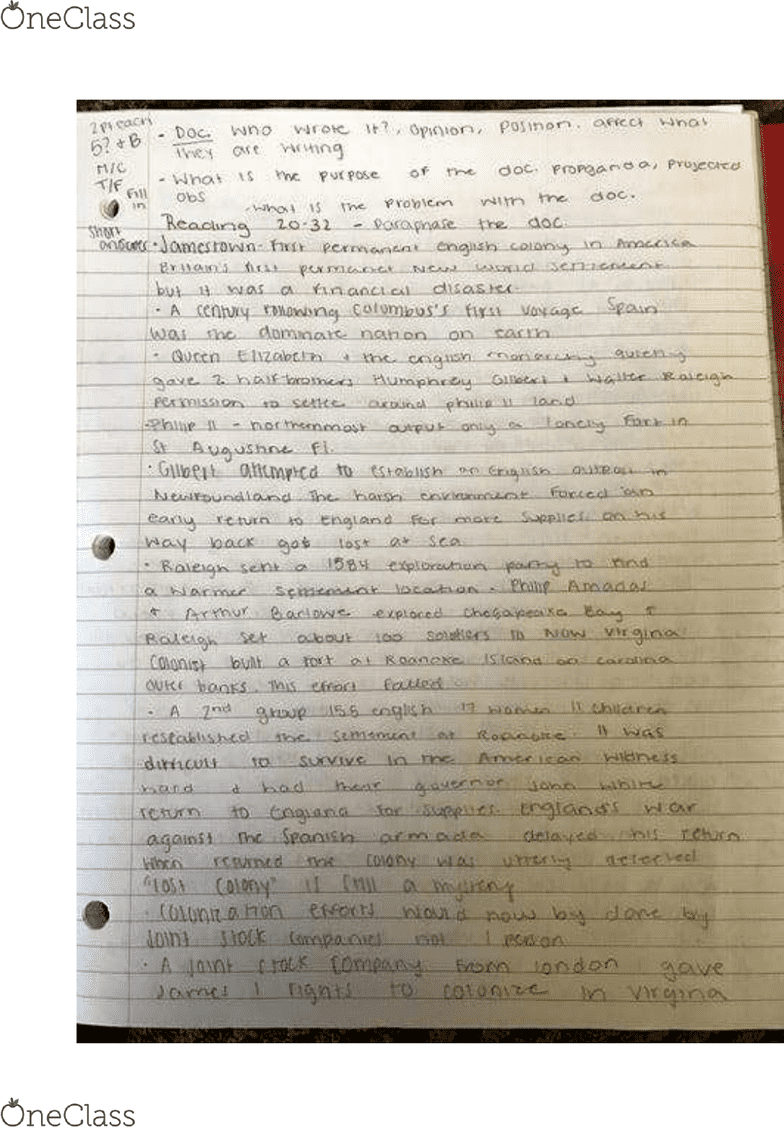 OneClass
2pt each
5? + B
M/C
T/F Fill in
Short answer
- Doc. who wrote it?, opinion, position. affect what
they are writing
- What is the purpose of the doc. Propganda, projected
obs
- what is the problem with the doc.
Reading 20-32 - Paraphase the doc.
· Jamestown - First permanent english colony in America
Britain's first permanet New World settlement
but it was a financial disaster.
· A century following Columbus's first voyage Spain
was the dominate nation on earth
· Queen Elizabeth + the english monarchy
gave 2 half brothers Humphrey Gilbert + Walter Raleigh
permission to settle around philip II land
- Philip II - northernmost output only a lonely Fort in
St Augustine Fl.
· Gilbert attempted to establish an English outpost in
Newfoundland. The harsh environment Forced an
early return to England for more supplies, on his
way back got lost at sea
· Raleigh sent a 1584 exploration party to find
a warmer settlement location - Philip Amadas
+ Arthur Barlowe explored Chesapeake Bay
Raleigh set about 100 soldiers to Now Virginia
Colonist built a fort at Roanoke Island on carolina
outer banks. This effort failed
· A 2nd group 155 english 17 women 11 children
restablished the settlement at Roanoke. It was
difficult to survive in the American wildness
hard + had their governor John White
return to England for supplies. England's war
against the Spanish armada delayed his return
When returned the colony was utterly deserved
"lost colony" is still a mystery
· Colonization efforts would now by done by
joint stock companies not 1 person
· A Joint stock Company from London gave
James I rights to colonize in Virginia
OneClass